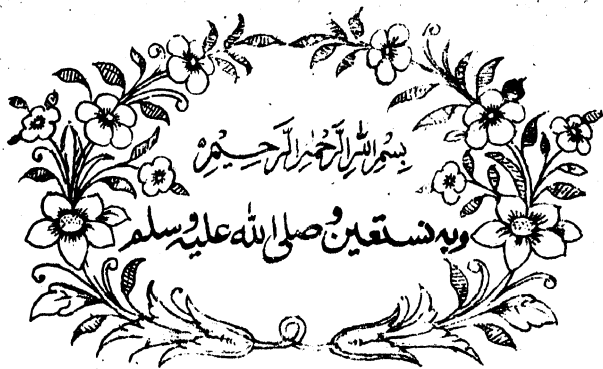 بِسْمِ اللهِ الرَّحْمٰنِ الرَّحِيْمِ
وبه نستعين وصلى الله عليه وسلم